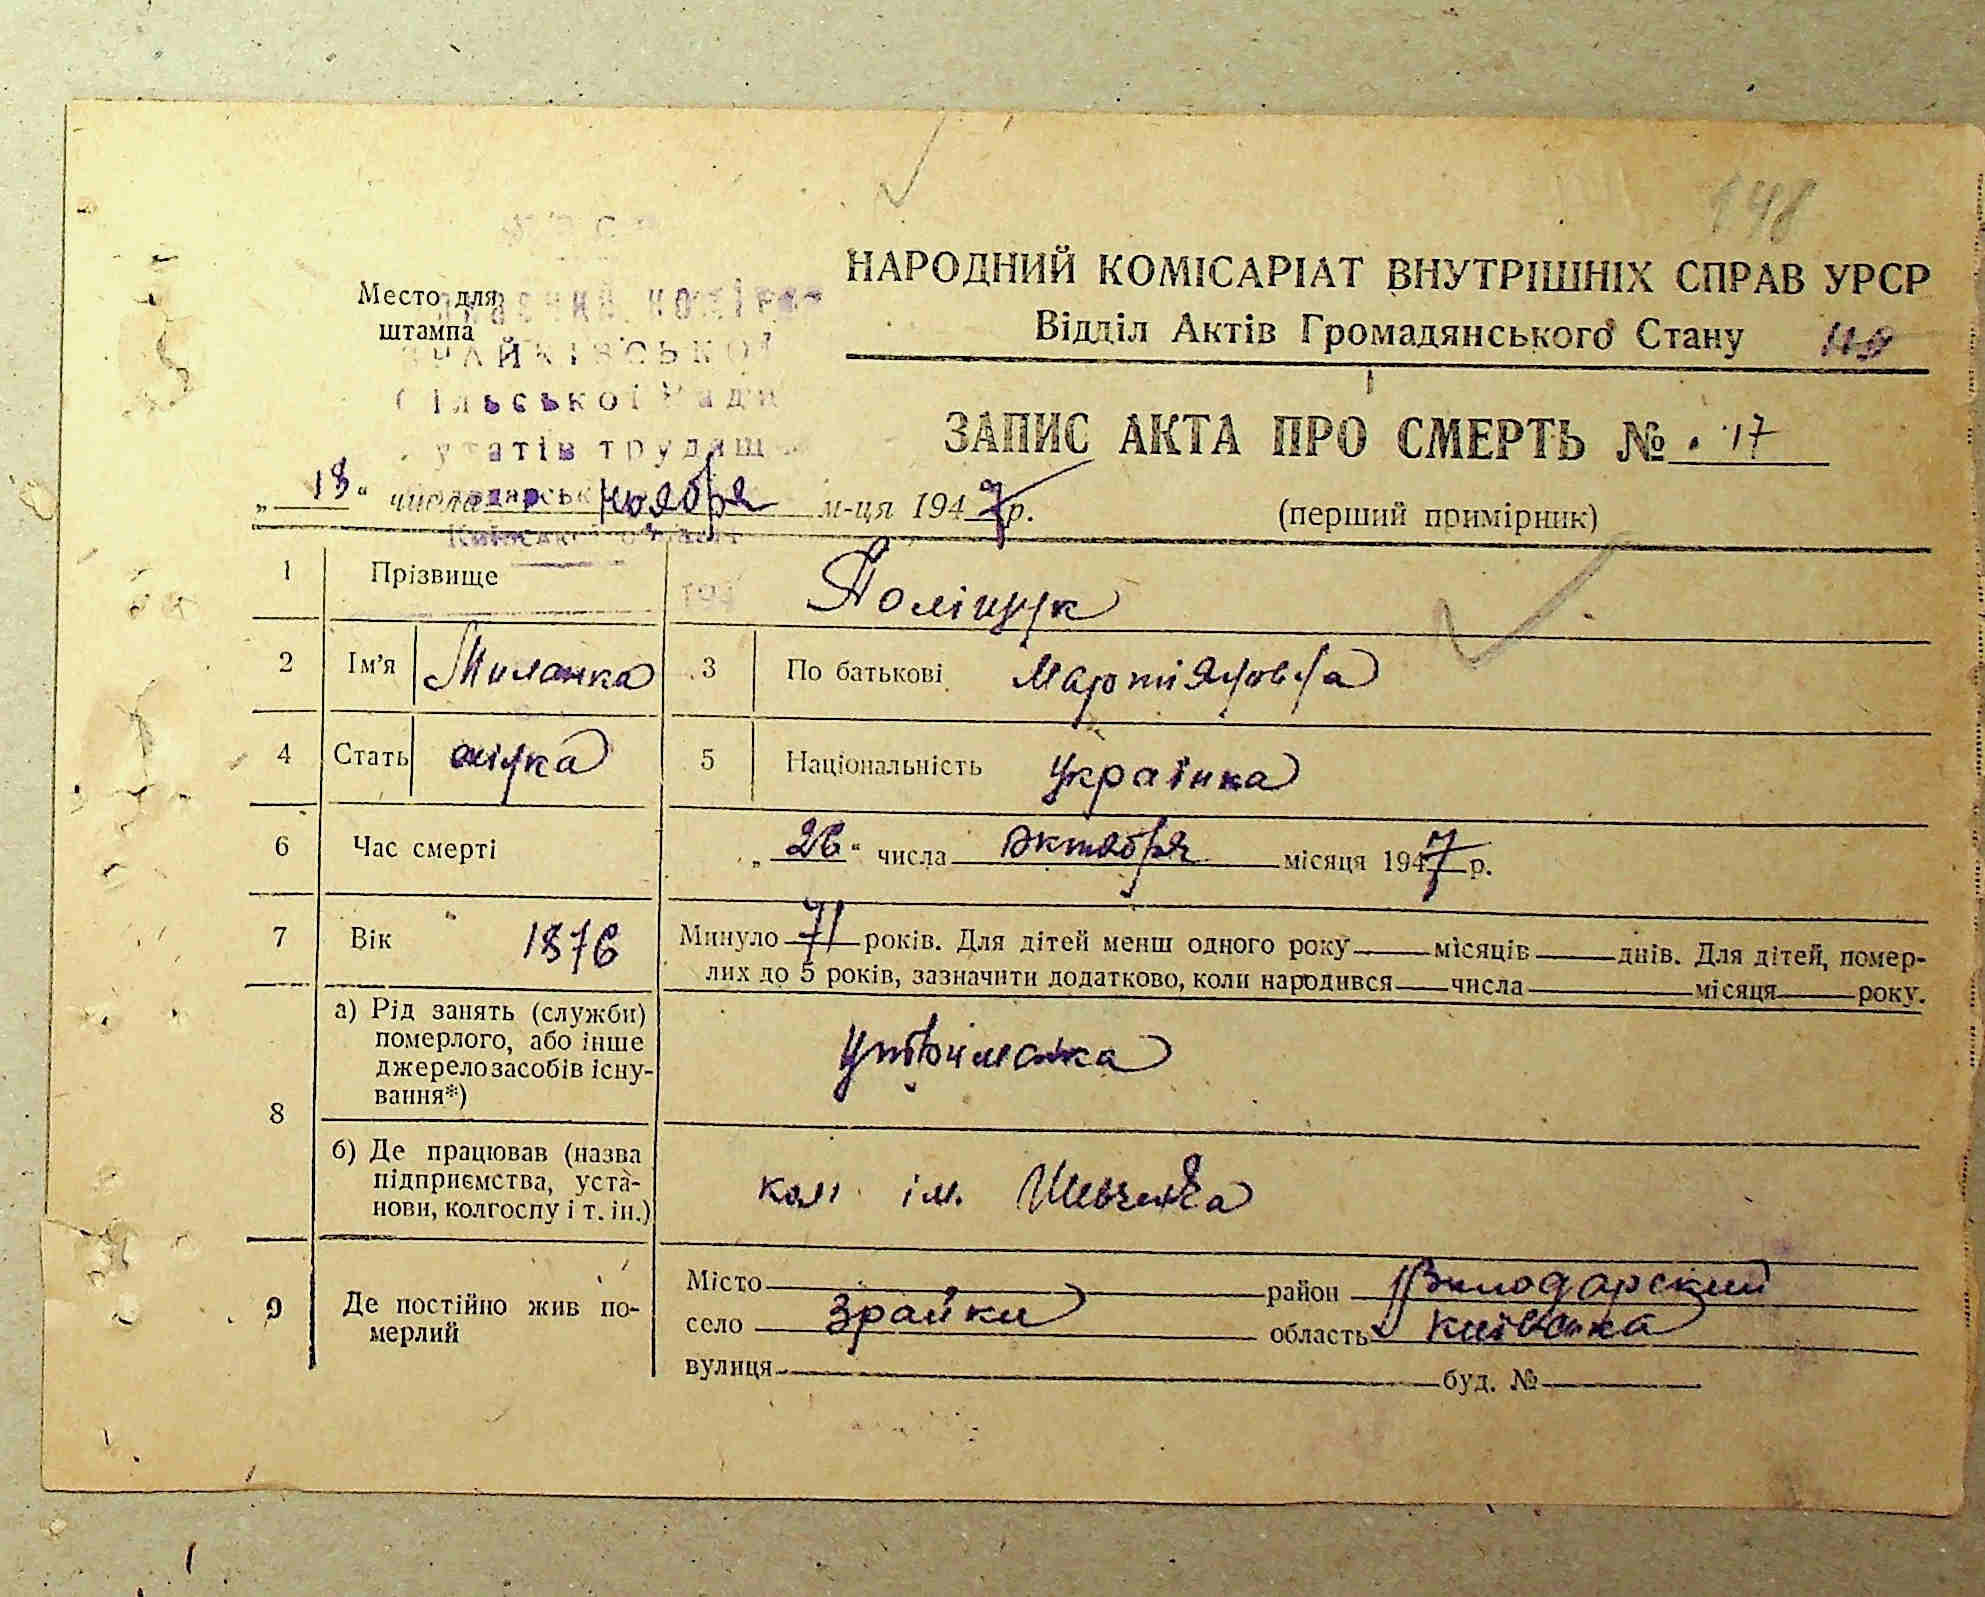 148
НАРОДНИЙ КОМІСАРІАТ ВНУТРІШНІХ СПРАВ УРСР
Место для штампа
Відділ Актів Громадянського Стану
ЗАПИС АКТА ПРО СМЕРТЬ № 17
„18“ числа ноября м-ця 1947 р.
(перший примірник)
1 Прізвище Поліщук
2 Ім'я Миланка 3 По батькові Мартіяновна
4 Стать жінка 5 Національність українка
6 Час смерті „26“ числа октября місяця 1947 р.
7 Вік 1876 Минуло 71 років. Для дітей менш одного року місяців днів. Для дітей, помер-
лих до 5 років, зазначити додатково, коли народився числа місяця року.
8 а) Рід занять (служби)
померлого, або інше
джерело засобів існу-
вання*)
утриманка
б) Де працював (назва
підприємства, уста-
нови, колгоспу і т. ін.)
кол ім. Шевченка
9 Де постійно жив по-
мерлий
Місто район Володарский
село Зрайки область Київська
вулиця буд. №